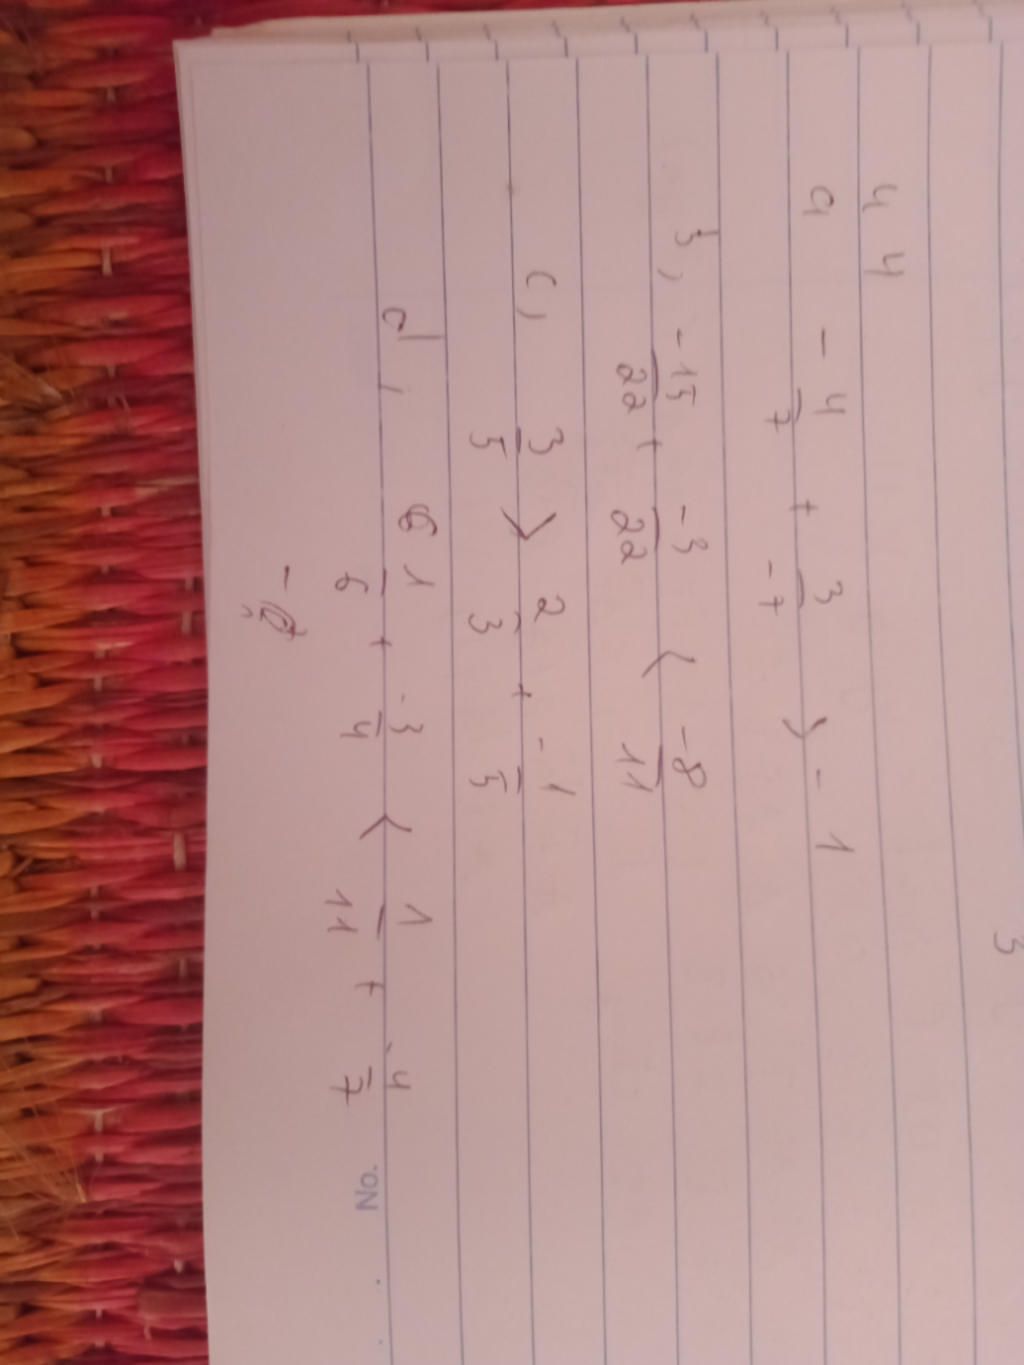 3
4 4
a - 4/7 + 3/-7 > - 1
b, -15/22 + -3/22 < -8/11
c, 3/5 > 2/3 + -1/5
d, 1/6 + -3/4 < 1/11 + -4/7
No.